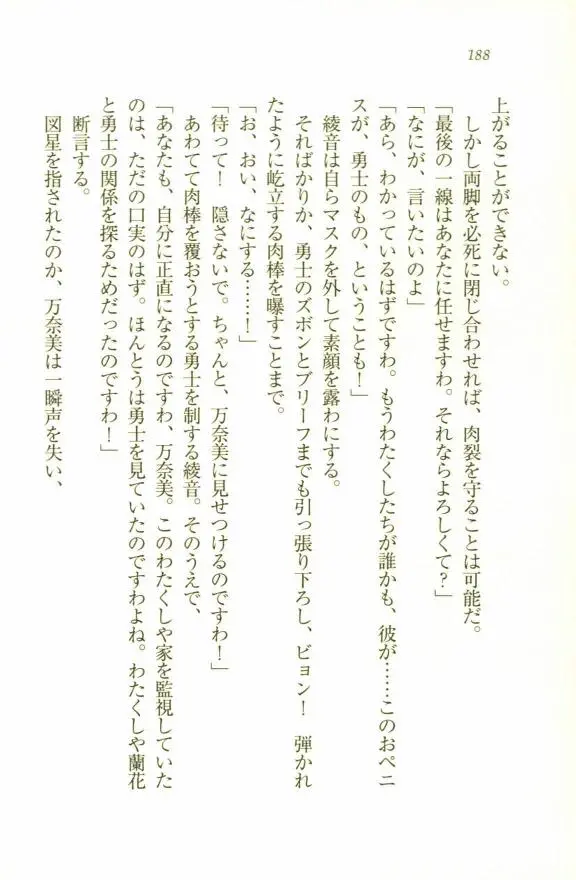 188
上がることができない。
しかし両脚を必死に閉じ合わせれば、肉裂を守ることは可能だ。
「最後の一線はあなたに任せますわ。それならよろしくて？」
「なにが、言いたいのよ」
「あら、わかっているはずですわ。もうわたくしたちが誰かも、彼が……このおペニ
スが、勇士のもの、ということも！」
綾音は自らマスクを外して素顔を露わにする。
そればかりか、勇士のズボンとブリーフまでも引っ張り下ろし、ビョン！　弾かれ
たように屹立する肉棒を曝すことまで。
「お、おい、なにする……！」
「待って！　隠さないで。ちゃんと、万奈美に見せつけるのですわ！」
あわてて肉棒を覆おうとする勇士を制する綾音。そのうえで、
「あなたも、自分に正直になるのですわ、万奈美。このわたくしや家を監視していた
のは、ただの口実のはず。ほんとうは勇士を見ていたのですわよね。わたくしや蘭花
と勇士の関係を探るためだったのですわ！」
断言する。
図星を指されたのか、万奈美は一瞬声を失い、